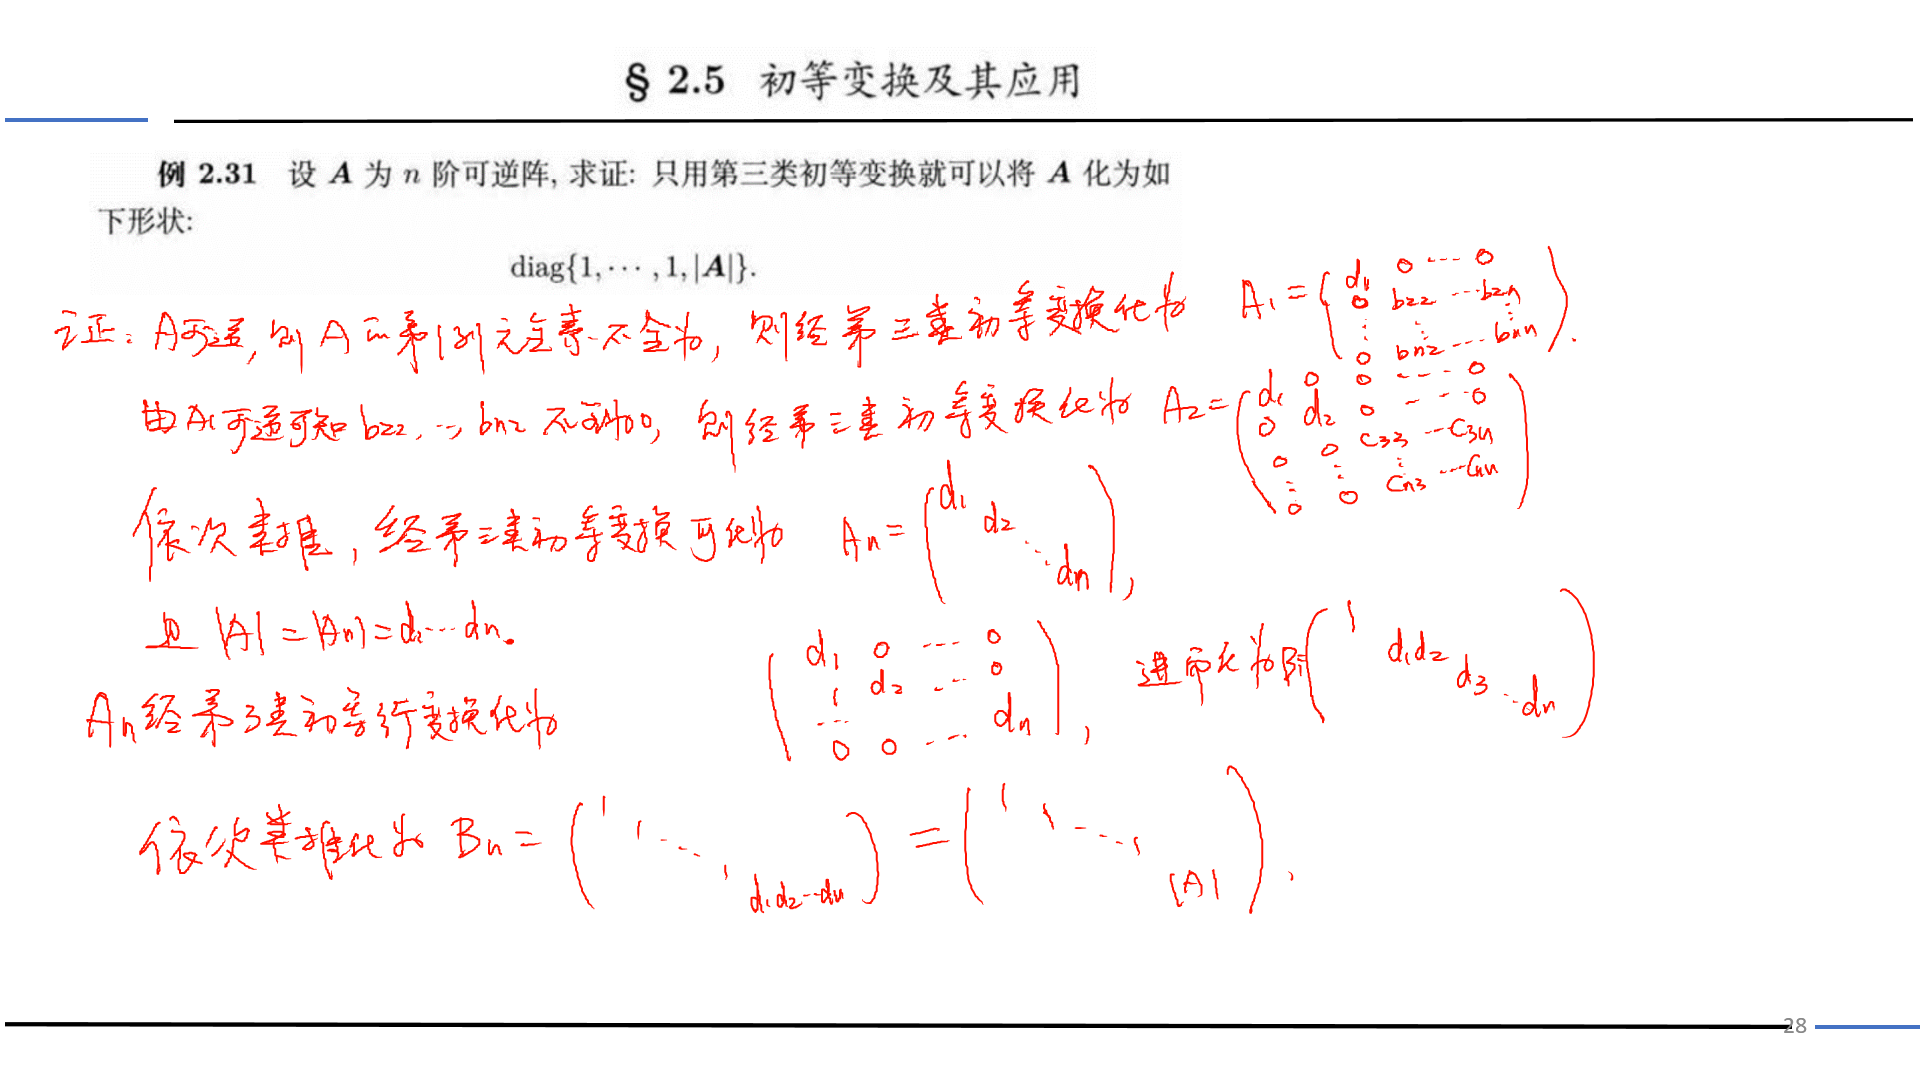 § 2.5 初等变换及其应用
例 2.31 设 A 为 n 阶可逆阵, 求证: 只用第三类初等变换就可以将 A 化为如
下形状:
diag{1, ⋯ , 1, |A|}.
证: A可逆, 则 A 的第1列元素不全为, 则经第三类初等变换化为 A₁ = ( d₁ 0 ⋯ 0
0 b₂₂ ⋯ b₂ₙ
⋮ ⋮ ⋮
0 bₙ₂ ⋯ bₙₙ ).
由A₁可逆可知 b₂₂, ⋯, bₙ₂ 不全为0, 则经第三类初等变换化为 A₂ = ( d₁ 0 0 ⋯ 0
0 d₂ 0 ⋯ 0
0 0 c₃₃ ⋯ c₃ₙ
⋮ ⋮ ⋮
0 0 cₙ₃ ⋯ cₙₙ )
依次类推, 经第三类初等变换可化为 Aₙ = ( d₁
d₂
⋱
dₙ ),
且 |A| = |Aₙ| = d₁⋯dₙ.
Aₙ 经第3类初等行变换化为 ( d₁ 0 ⋯ 0
1 d₂ ⋯ 0
⋯ dₙ
0 0 ⋯ ), 进而化为 B₁= ( 1
d₁d₂
d₃
⋱ dₙ )
依次类推化为 Bₙ = ( 1
1
⋱
1
d₁d₂⋯dₙ ) = ( 1
1
⋱
1
|A| ).
28